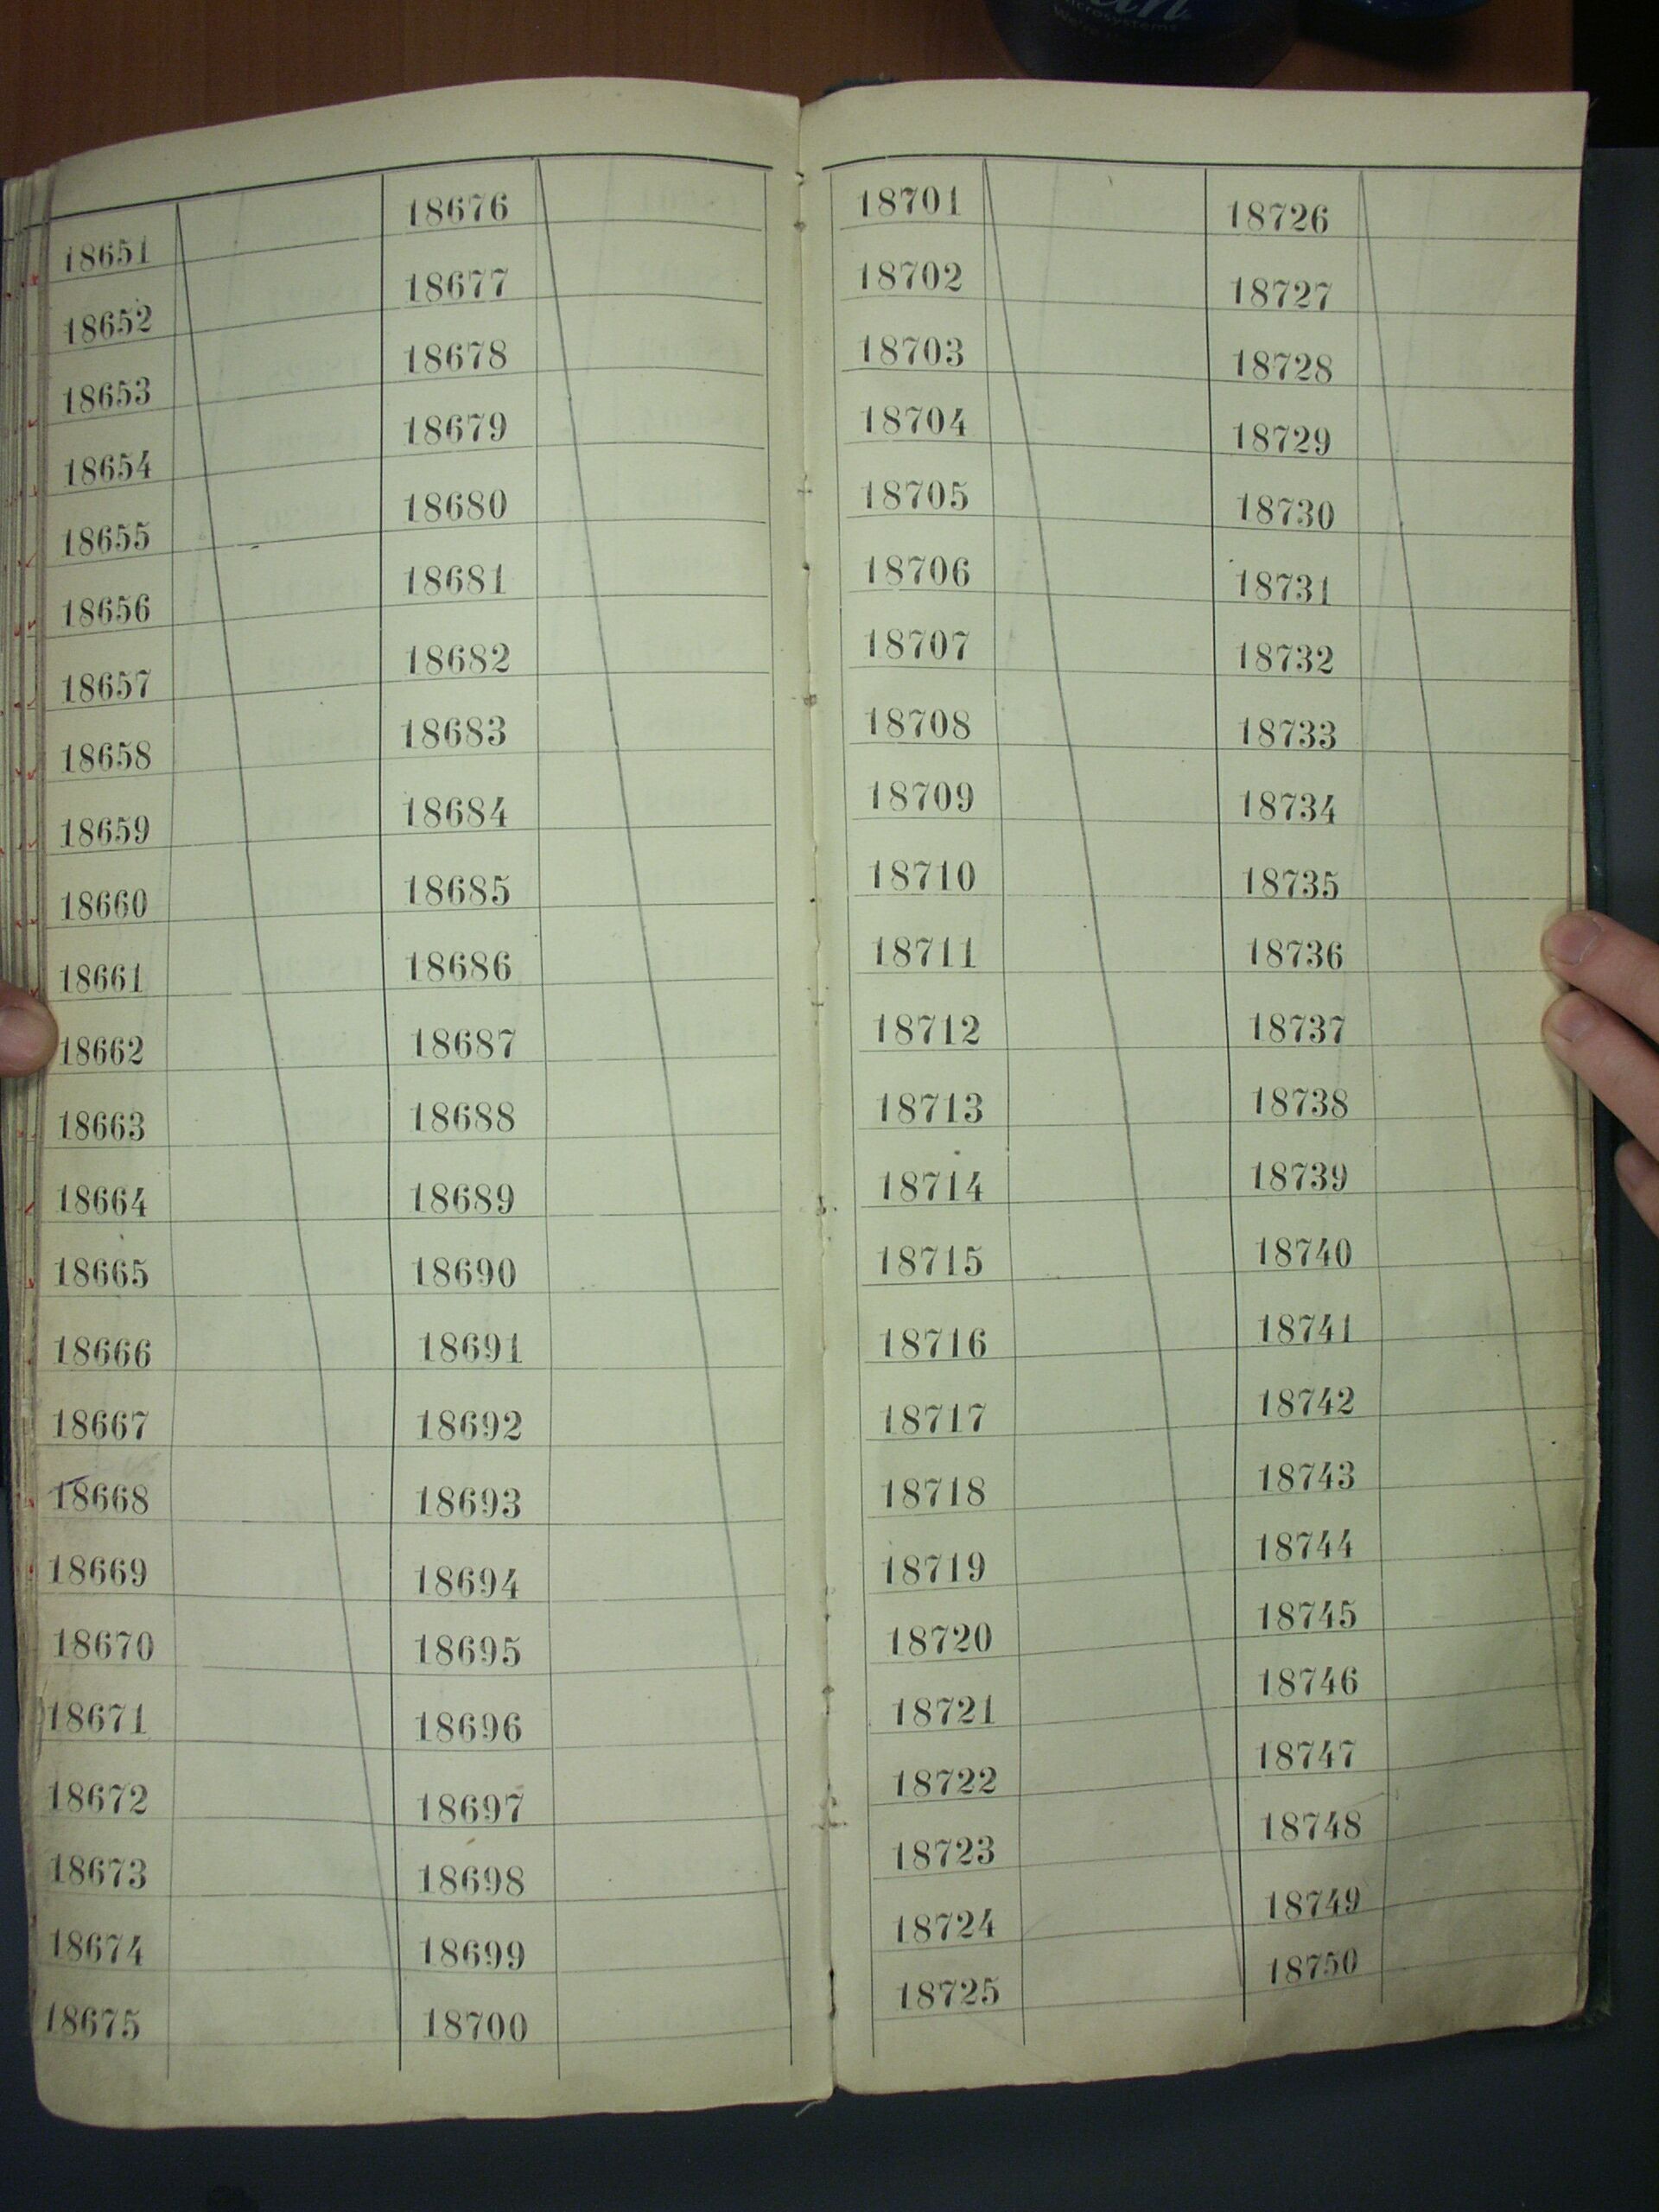 microsystems
18651
18652
18653
18654
18655
18656
18657
18658
18659
18660
18661
18662
18663
18664
18665
18666
18667
18668
18669
18670
18671
18672
18673
18674
18675
18676
18677
18678
18679
18680
18681
18682
18683
18684
18685
18686
18687
18688
18689
18690
18691
18692
18693
18694
18695
18696
18697
18698
18699
18700
18701
18702
18703
18704
18705
18706
18707
18708
18709
18710
18711
18712
18713
18714
18715
18716
18717
18718
18719
18720
18721
18722
18723
18724
18725
18726
18727
18728
18729
18730
18731
18732
18733
18734
18735
18736
18737
18738
18739
18740
18741
18742
18743
18744
18745
18746
18747
18748
18749
18750